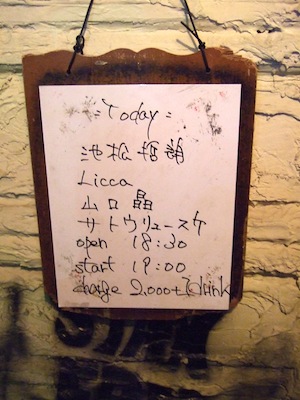 Today:
池松
Licca
山口 晶
サトウリュースケ
open 18:30
start 19:00
charge 2,000+1Drink